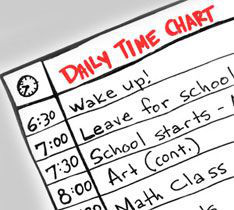 DAILY TIME CHART
6:30 wake up!
7:00 Leave for school
7:30 School starts -
8:00 Art (cont.)
Math Class